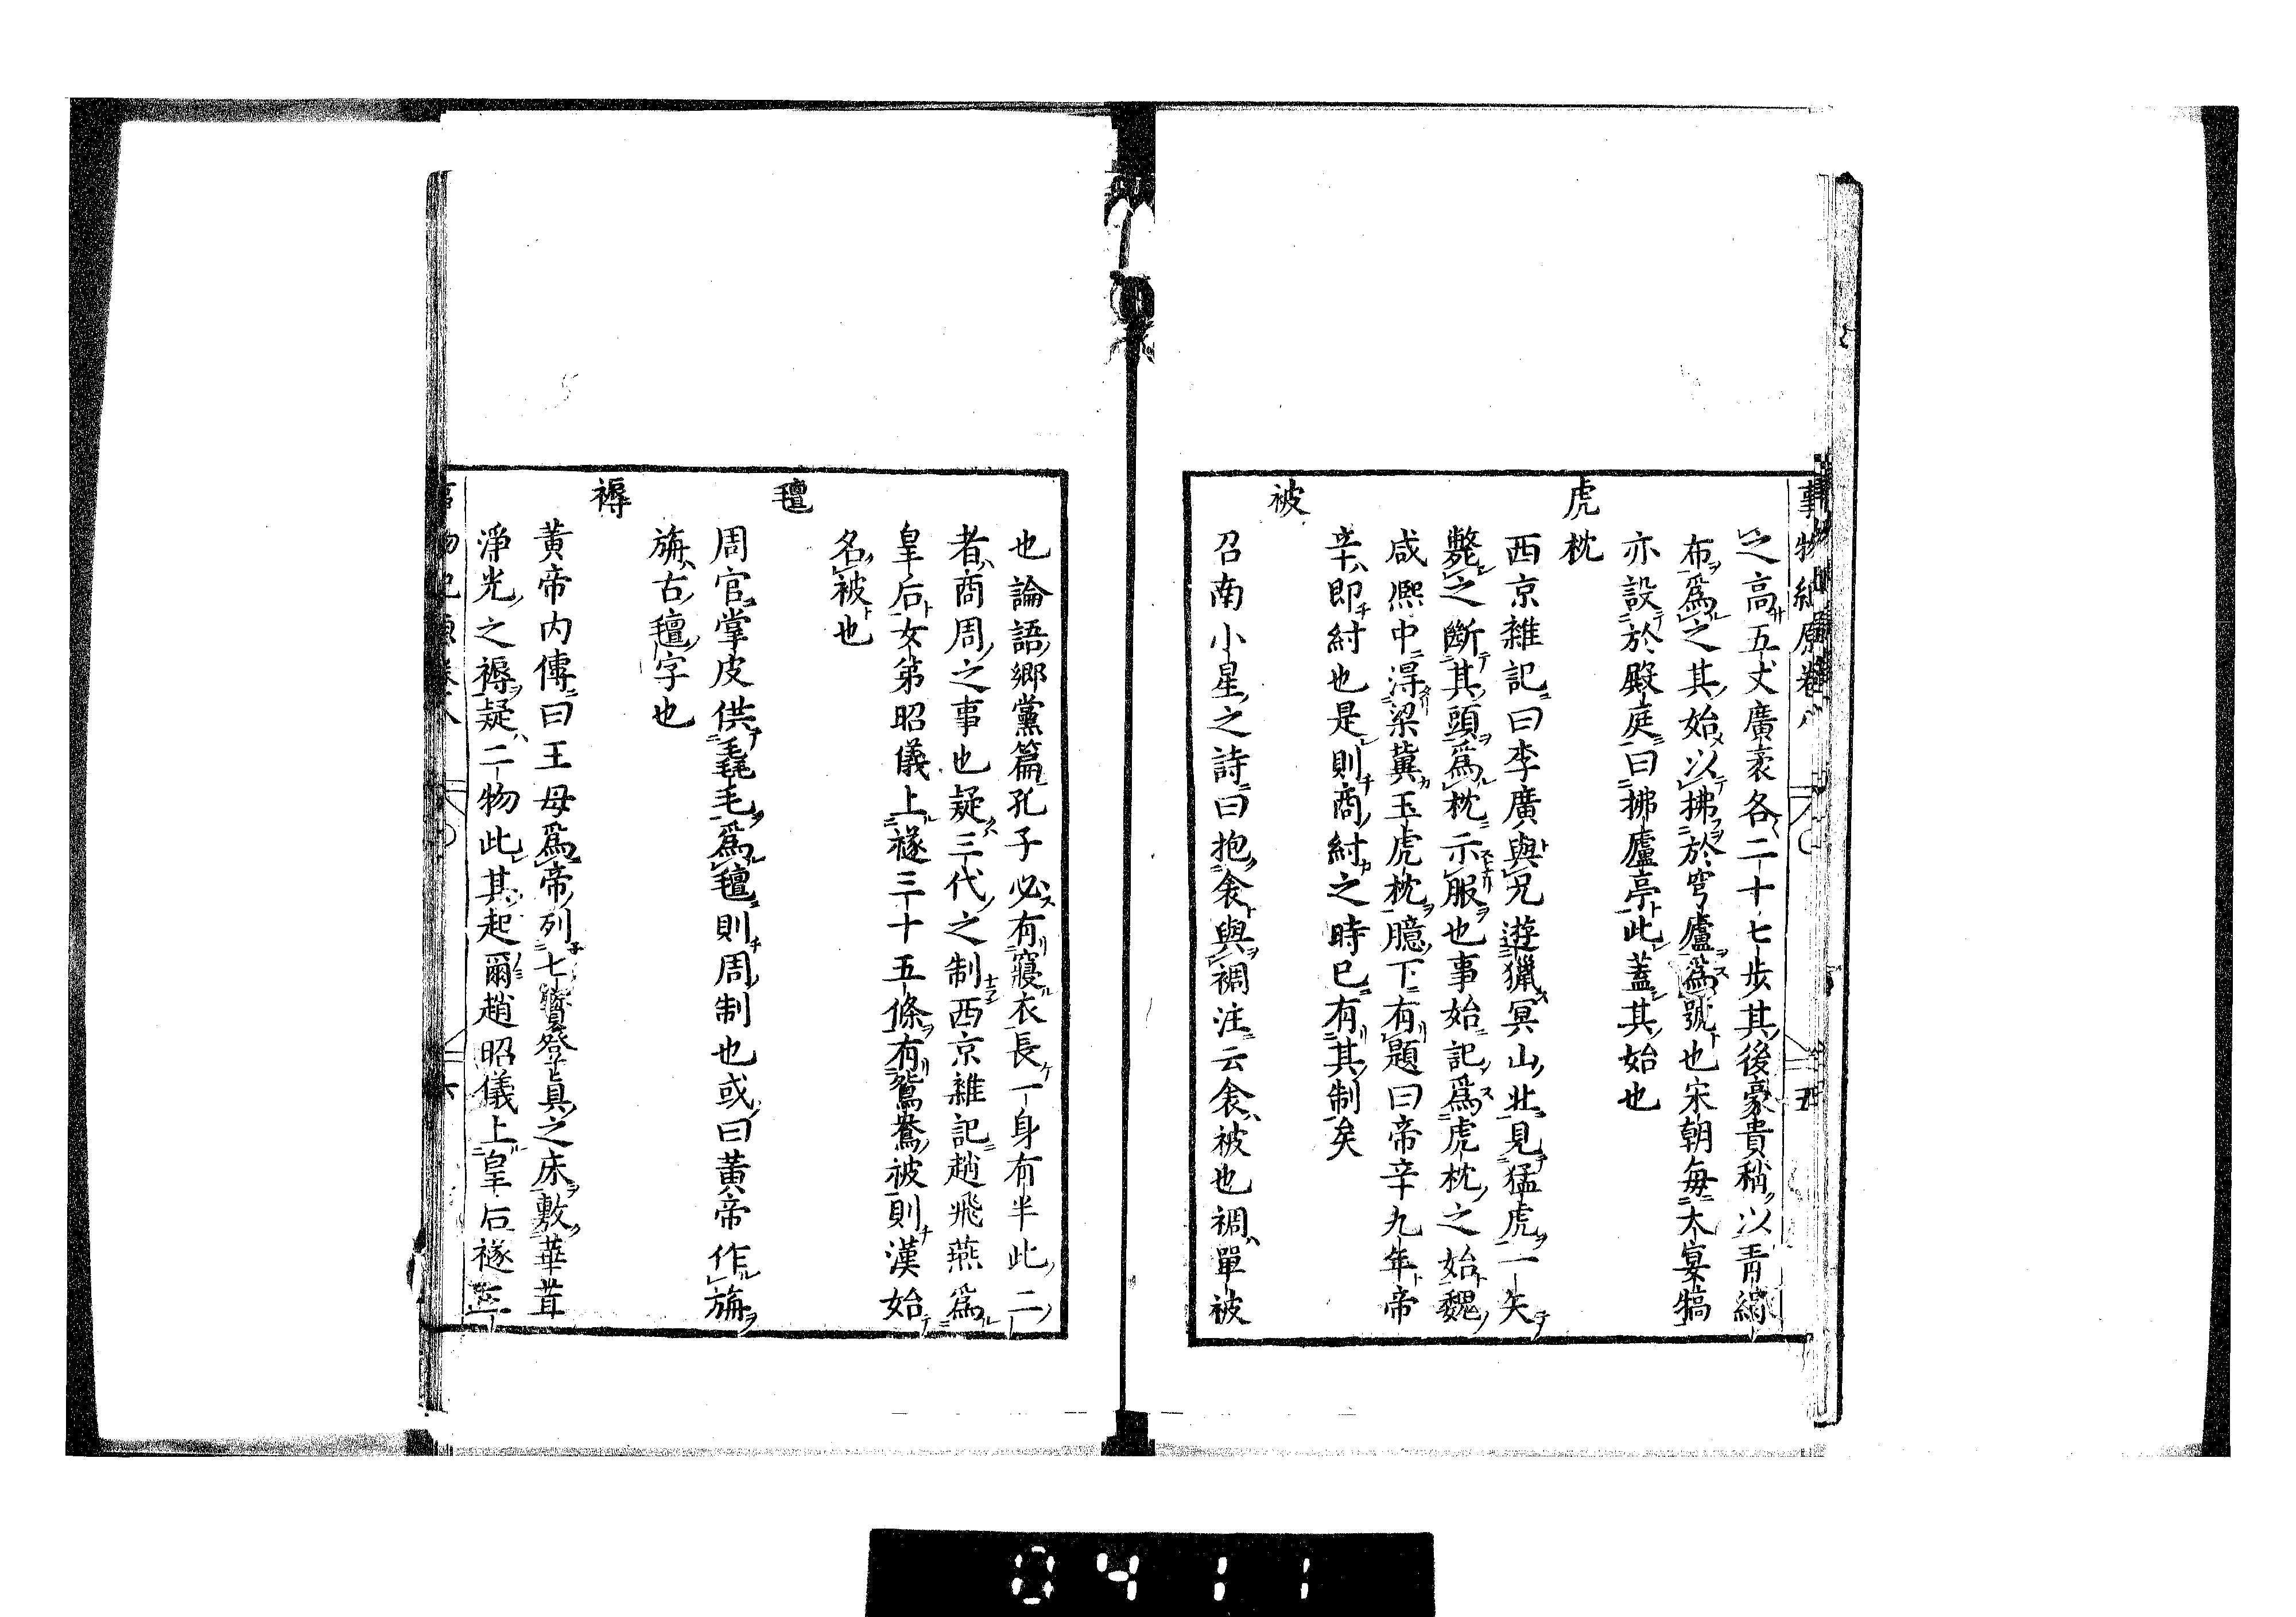 事物紀原卷八
五
之高五丈廣袤各二十七步其後豪貴稍以青絹
布爲之其始以拂於穹廬爲號也宋朝每大宴犒
亦設於殿庭曰拂廬亭此蓋其始也
虎枕
西京雜記曰李廣與兄遊獵冥山北見猛虎一矢
斃之斷其頭爲枕示服也事始記爲虎枕之始魏
咸熙中得梁冀玉虎枕臆下有題曰帝辛九年帝
辛即紂也是則商紂之時已有其制矣
被
召南小星之詩曰抱衾與裯注云衾被也裯單被
也論語鄉黨篇孔子必有寢衣長一身有半此二
者商周之事也疑三代之制西京雜記趙飛燕爲
皇后女第昭儀上襚三十五條有鴛鴦被則漢始
名被也
氊
周官掌皮供毳毛爲氊則周制也或曰黃帝作旃
旃古氊字也
褥
黃帝内傳曰王母爲帝列七寶登眞之床敷華茸
淨光之褥疑二物此其起爾趙昭儀上皇后襚三
六
0411